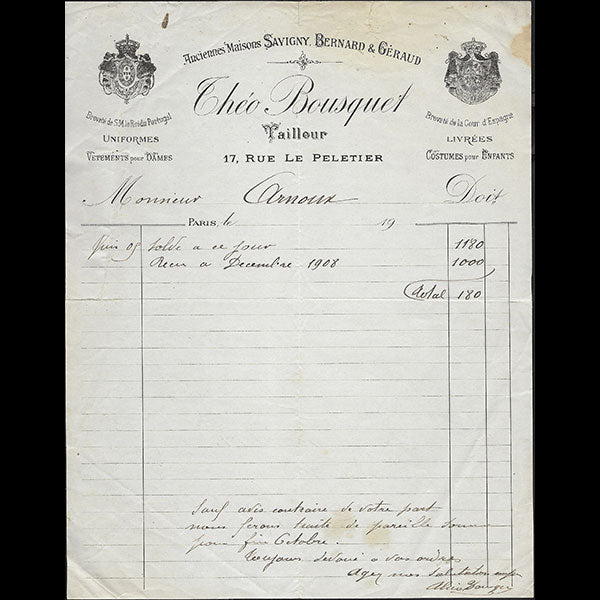 Anciennes Maisons SAVIGNY, BERNARD & GÉRAUD
Théo Bousquet
Tailleur
17, RUE LE PELETIER
Breveté de S.M. le Roi du Portugal
UNIFORMES
VÊTEMENTS pour DAMES
Breveté de la Cour d'Espagne
LIVRÉES
COSTUMES pour ENFANTS
Monsieur Arnoux Doit
PARIS, le 19
Juin 09 Solde a ce jour 1180
Recu a Decembre 1908 1000
Total 180
Sauf avis contraire de votre part
nous ferons traite de pareille somme
pour fin Octobre.
Toujours dévoué a vos ordres
Agez nos Salutation